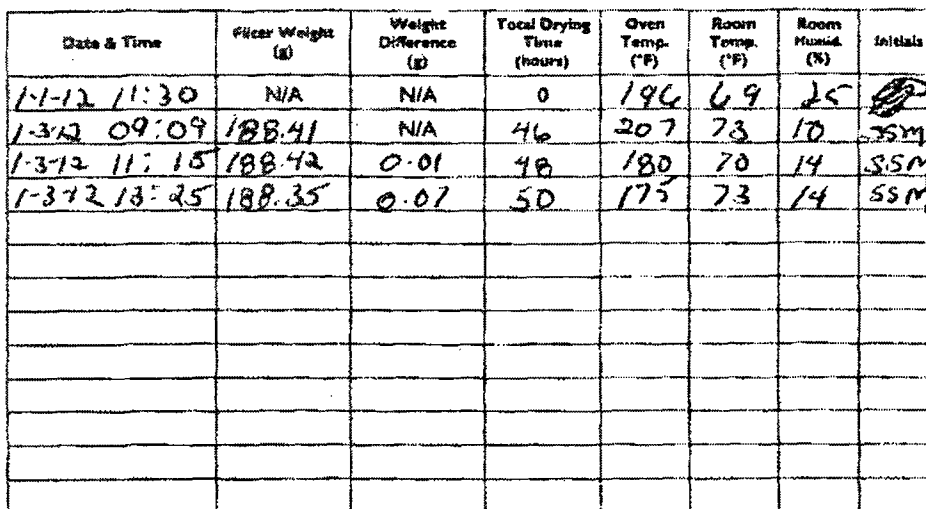 Date & Time Filter Weight (g) Weight Difference (g) Total Drying Time (hours) Oven Temp. (°F) Room Temp. (°F) Room Humid. (%) Initials
1-1-12 11:30 N/A N/A 0 196 69 25
1-3-12 09:09 188.41 N/A 46 207 73 10 SSM
1-3-12 11:15 188.42 0.01 48 180 70 14 SSM
1-3-12 13:25 188.35 0.07 50 175 73 14 SSM